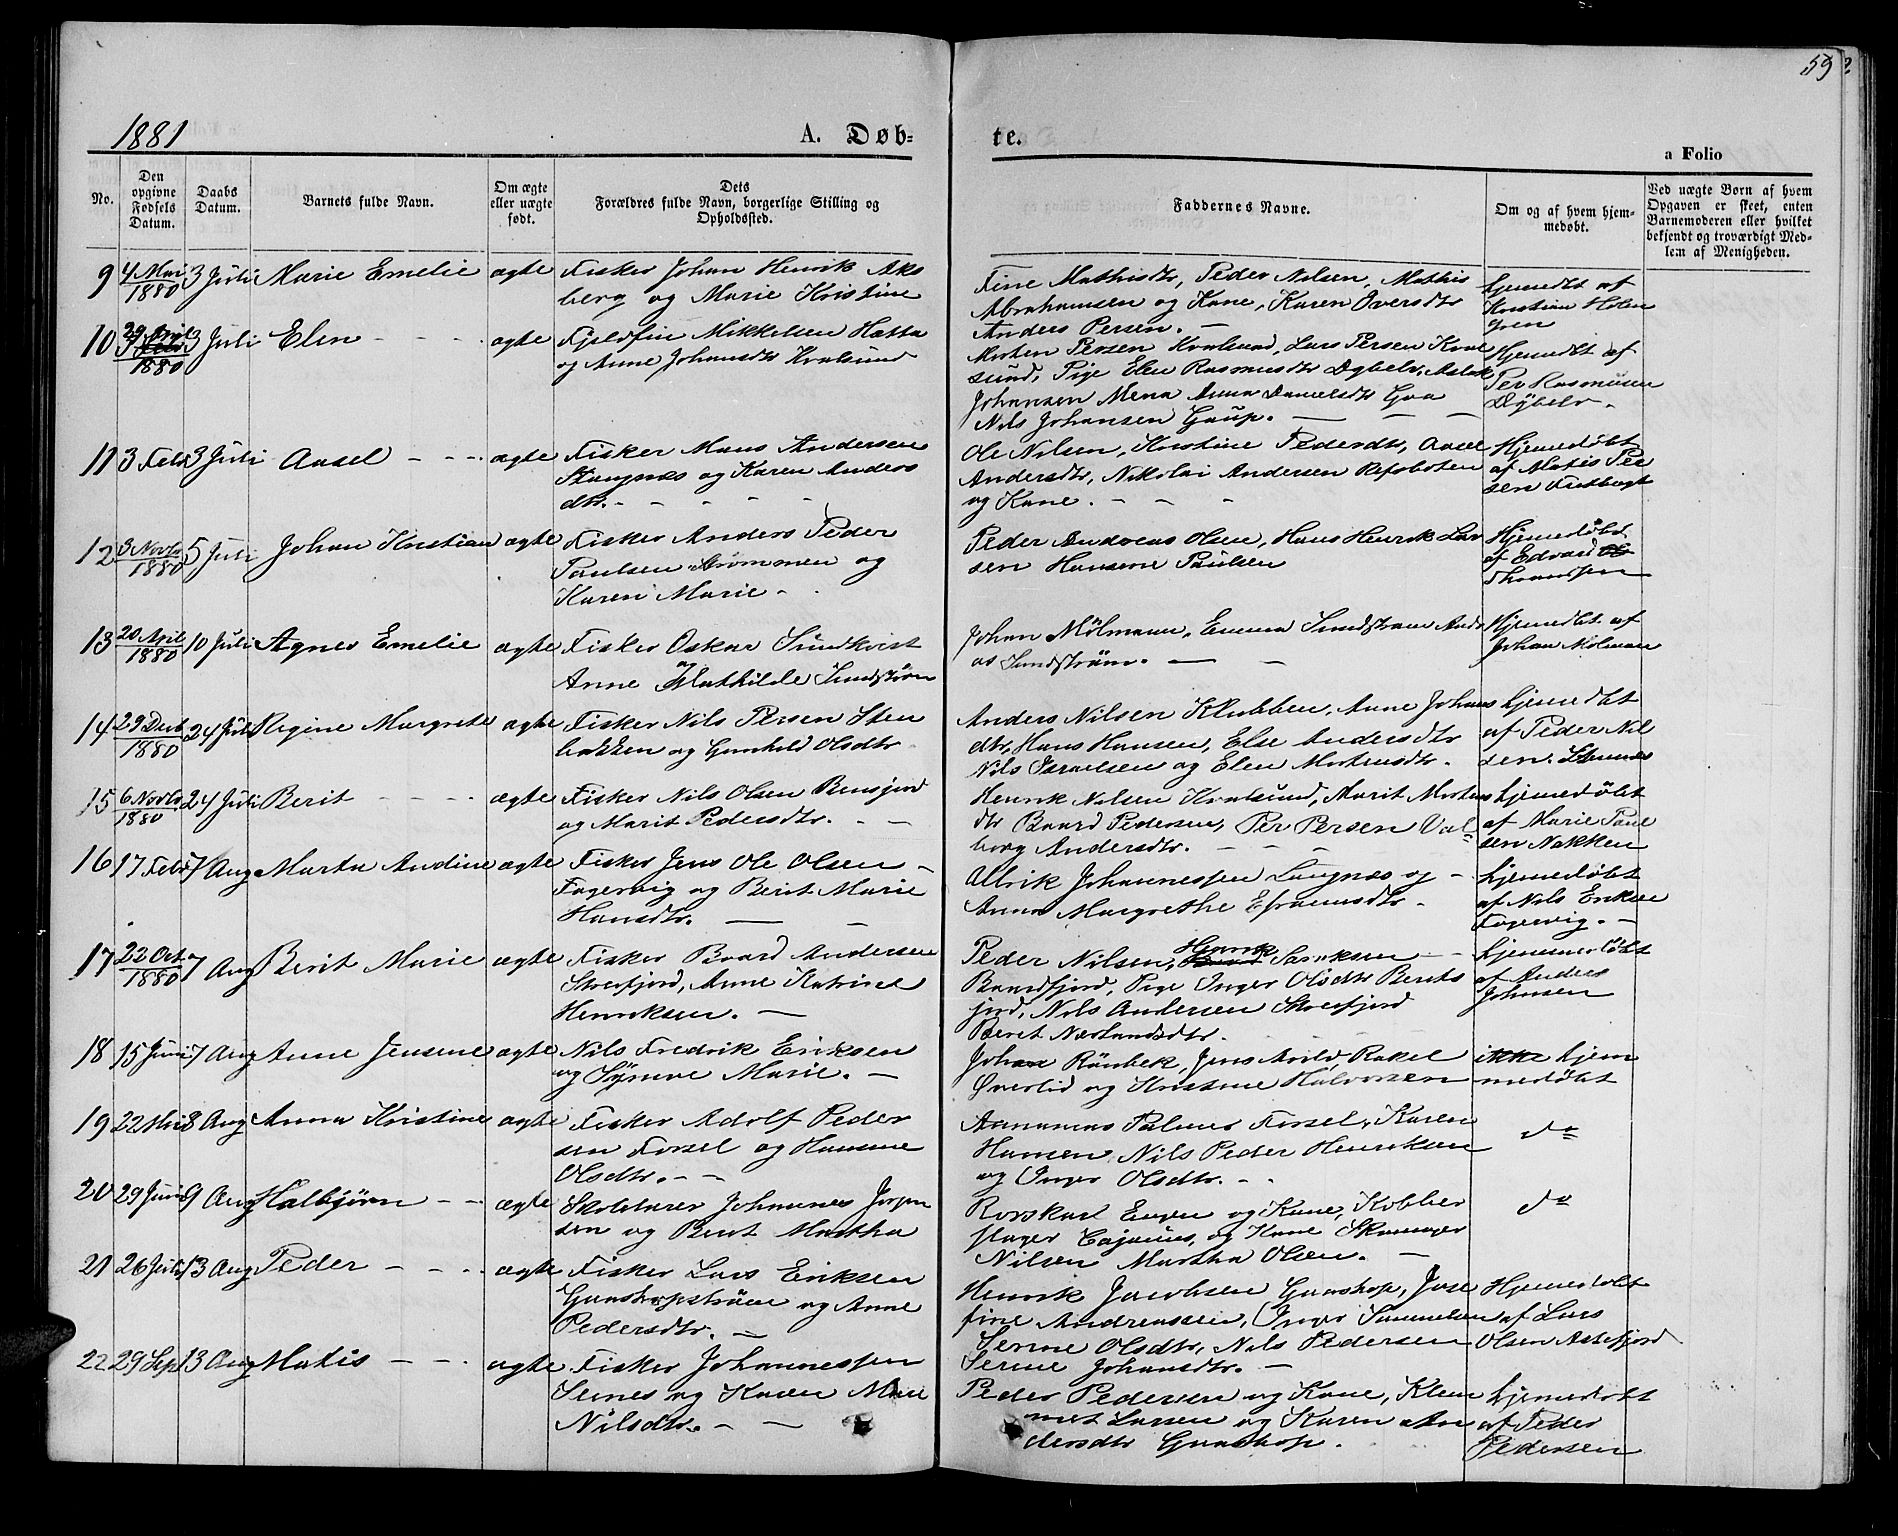 59
1881
A. Døb-
te.
a Folio
No.
Den opgivne Fødsels Datum.
Daabs Datum.
Barnets fulde Navn.
Om ægte eller uægte født.
Dets Forældres fulde Navn, borgerlige Stilling og Opholdssted.
Faddernes Navne.
Om og af hvem hjemmedøbt.
Ved uægte Børn af hvem Opgaven er skeet, enten Barnemoderen eller hvilket bekjendt og troværdigt Medlem af Menigheden.
9 4 Mai 1880 3 Juli Marie Emelie ægte Fisker Johan Henrik Aks
berg og Marie Kristine
Fine Mathisdtr, Peder Nilsen, Mathis
Abrahamsen og Kone, Karen Iversdtr
Anders Persen. —
hjemdbt af
Kristian Holm
gren
10 29 April 1880 3 Juli Elen ægte Fjeldfin Mikkelsen Hætta
og Anne Johansdtr Kvalsund
Morten Persen Kvalsund, Lars Persen Kval
sund, Pige Elen Rasmusdtr Dybelv, Aslak
Johansen Mena Anna Danielsdtr Goa
Nils Johansen Gaup. —
Hjemdbt af
Per Rasmusen
Dybelv.
11 3 Febr 3 Juli Axel ægte Fisker Mans Andersen
Stangnæs og Karen Anders
dtr.
Ole Nilsen, Kristine Pedersdtr,
Andersdtr, Nikolai Andersen Refsbotten
og Kone.
Hjemedøbt
af Matis Per
sen
12 3 Novbr 1880 5 Juli Johan Kristian ægte Fisker Anders Peder
Paulsen Strømmen og
Karen Marie
Peder Andreas Olsen, Hans Henrik Lar
sen Hansene Paulsen
Hjemedøbt
af Edvard
13 20 April 1880 10 Juli Agnes Emelie ægte Fisker Oskar Sundkvist
og
Anne Mathilde Sundstrøm
Johan Mölmann, Emma Sundstrøm Andr
as Sundstrøm.
Hjemdbt af
Johan Molman
14 29 Decb 1880 24 Juli Regine Margrete ægte Fisker Nils Persen Sten
bakken og Gunhild Olsdtr
Anders Nilsen Klubben, Anne Johans
dtr, Hans Hansen, Else Andersdtr
Nils Israelsen og Elen Mortensdtr.
hjemedbt
af Peder Nil
sen.
15 6 Novbr 1880 24 Juli Berit ægte Fisker Nils Olsen Bensjord
og Marit Pedersdtr.
Henrik Nilsen Kvalsund, Marit Mortens
dtr Baard Pedersen, Per Persen Val-
borg Andersdtr.
hjemedøbt
af Marie Paul
sen Nakken
16 17 Febr 7 Aug Marta Andine ægte Fisker Jens Ole Olsen
Fagervig og Berit Marie
Hansdtr.
Alerik Johannessen Langnæs og
Anna Margrethe Efraimsdtr.
hjemedøbt
af Nils Eriksen
Fagervig.
17 22 Oct 1880 7 Aug Berit Marie ægte Fisker Baard Andersen
Skreifjord, Anne Katrine
Henriksen.
Peder Nilsen, Henrik Isaksen
Baardfjord, Pige Inger Olsdtr Berits
jord, Nils Andersen Skreifjord
Beret Norlandsdtr.
hjemmedøbt
af Anders
Johnsen
18 15 Juni 7 Aug Anne Jensine ægte Nils Fredrik Eriksen
og Synove Marie.
Johan Rönbek, Jens Arild, Rakel
Qvertid og Kristine Halvorsen
ikke hjem
medøbt
19 22 Mai 8 Aug Anna Kristine ægte Fisker Adolf Peder
sen Forsel og Hansine
Olsdtr.
Ananias Palmer Forsel, Karen
Hansen, Nils Peder Henriksen
og Inger Olsdtr.
do
20 29 Juni 9 Aug Halbjørn ægte Skolelærer Johannes Jørgen
sen og Berit Martha
og Kone, Kobber
slager Cajanus, og Kone Skaanager
Nilsen Martha Olsen.
do
21 26 Juli 13 Aug Peder ægte Fisker Lars Eriksen
Gaashopstrøm og Anne
Pedersdtr.
Henrik Jacobsen Gaashop, Jose
fine Andreassen, Inger Samuelsen
Serine Olsdtr, Nils Pedersen
Serine Johansdtr.
Hjemedøbt
af Lars
Olsen Astefjord
22 29 Sep 13 Aug Matis ægte Fisker Johannessen
Seines og Karen Mari
Nilsdtr.
Peder Pedersen og Kone, Klem
met Larsen og Karen An
dersdtr Gaashop.
hjemedøbt
af Peder
Pedersen